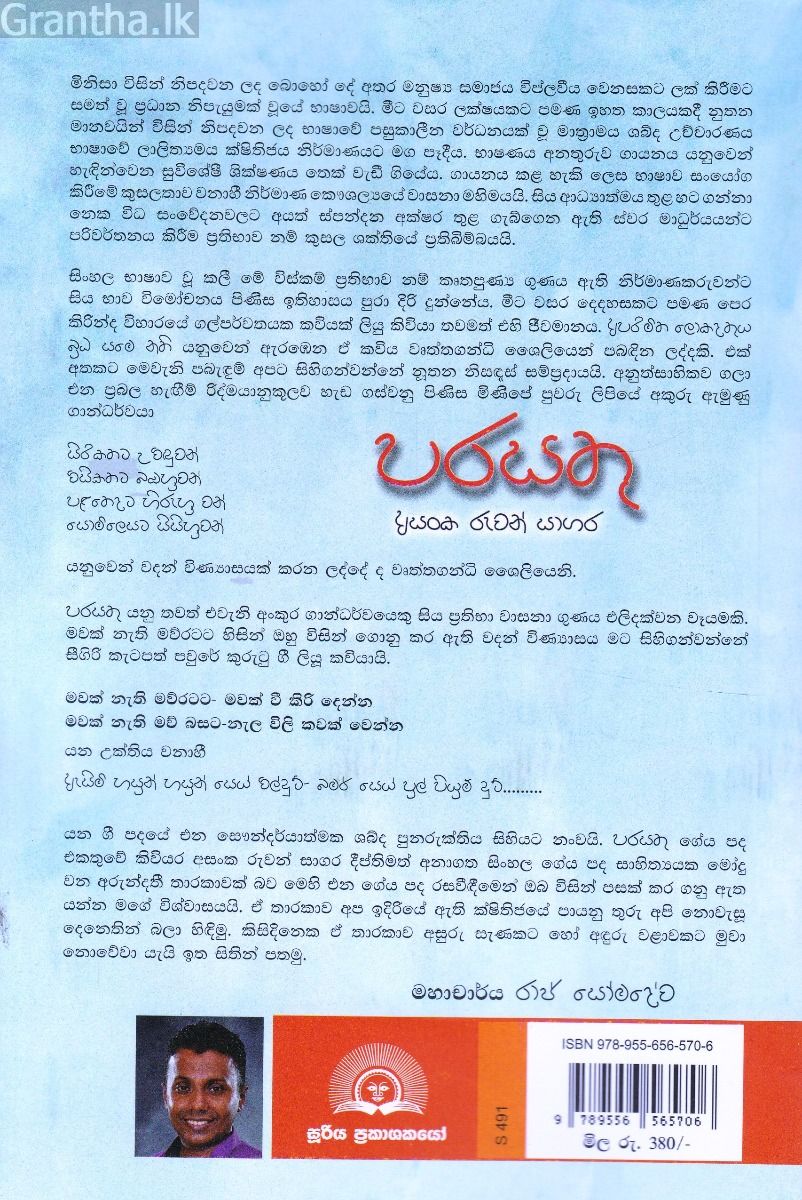 Grantha.lk
මිනිසා විසින් නිපදවන ලද බොහෝ දේ අතර මනුෂ්‍ය සමාජය විප්ලවීය වෙනසකට ලක් කිරීමට
සමත් වූ ප්‍රධාන නිපැයුමක් වූයේ භාෂාවයි. මීට වසර ලක්ෂයකට පමණ ඉහත කාලයකදී නූතන
මානවයින් විසින් නිපදවන ලද භාෂාවේ පසුකාලීන වර්ධනයක් වූ මාත්‍රාමය ශබ්ද උච්චාරණය
භාෂාවේ ලාලිත්‍යමය ක්ෂිතිජය නිර්මාණයට මග පෑදීය. භාෂණය අනතුරුව ගායනය යනුවෙන්
හැඳින්වෙන සුවිශේෂී ශික්ෂණය තෙක් වැඩී ගියේය. ගායනය කළ හැකි ලෙස භාෂාව සංයෝග
කිරීමේ කුසලතාව වනාහී නිර්මාණ කෞශල්‍යයේ වාසනා මහිමයයි. සිය ආධ්‍යාත්මය තුළ හට ගන්නා
නෙක විධ සංවේදනවලට අයත් ස්පන්දන අක්ෂර තුළ ගැබ්ගෙන ඇති ස්වර මාධුර්යයන්ට
පරිවර්තනය කිරීම ප්‍රතිභාව නම් කුසල ශක්තියේ ප්‍රතිබිම්බයයි.
සිංහල භාෂාව වූ කලී මේ විස්කම් ප්‍රතිභාව නම් කෘතපුණ්‍ය ගුණය ඇති නිර්මාණකරුවන්ට
සිය භාව විමෝචනය පිණිස ඉතිහාසය පුරා දිරි දුන්නේය. මීට වසර දෙදහසකට පමණ පෙර
කිරින්ද විහාරයේ ගල්පර්වතයක කවියක් ලියූ කිවියා තවමත් එහි ජීවමානය. අපරිමිත ලොකදතුය
බුධ සමෙ නති යනුවෙන් ඇරඹෙන ඒ කවිය වෘත්තගන්ධි ශෛලියෙන් පබඳින ලද්දකි. එක්
අතකට මෙවැනි පබැඳුම් අපට සිහිගන්වන්නේ නූතන නිසඳැස් සම්ප්‍රදායයි. අනුත්සාහිකව ගලා
එන ප්‍රබල හැඟීම් රිද්මයානුකූලව හැඩ ගස්වනු පිණිස මිණිපේ පුවරු ලිපියේ අකුරු ඇමුණු
ගාන්ධර්වයා
සිරිකතට උවිඳුවන්
විසිකතට බඹහුවන්
පළතෙදට හිරුහු වන්
සොම්ලෙසට සිසිහුවන්
පරසතු
අසංක රුවන් සාගර
යනුවෙන් වදන් විණ්‍යාසයක් කරන ලද්දේ ද වෘත්තගන්ධි ශෛලියෙනි.
පරසතු යනු තවත් එවැනි අංකුර ගාන්ධර්වයෙකු සිය ප්‍රතිභා වාසනා ගුණය එලිදක්වන වෑයමකි.
මවක් නැති මව්රටට හිසින් ඔහු විසින් ගොනු කර ඇති වදන් විණ්‍යාසය මට සිහිගන්වන්නේ
සීගිරි කැටපත් පවුරේ කුරුටු ගී ලියූ කවියායි.
මවක් නැති මව්රටට- මවක් වී කිරි දෙන්න
මවක් නැති මව් බසට-නැල විලි කවක් වෙන්න
යන උක්තිය වනාහී
ඇසිමි හසුන් හසුන් සෙය් විල්දුට්- බමර සෙය් පුල් පියුම් දුට්.........
යන ගී පදයේ එන සෞන්දර්යාත්මක ශබ්ද පුනරුක්තිය සිහියට නංවයි. පරසතු ගේය පද
එකතුවේ කිවියර අසංක රුවන් සාගර දීප්තිමත් අනාගත සිංහල ගේය පද සාහිත්‍යයක මෝදු
වන අරුන්දතී තාරකාවක් බව මෙහි එන ගේය පද රසවිඳීමෙන් ඔබ විසින් පසක් කර ගනු ඇත
යන්න මගේ විශ්වාසයයි. ඒ තාරකාව අප ඉදිරියේ ඇති ක්ෂිතිජයේ පායනු තුරු අපි නොවැසූ
දෙනෙතින් බලා හිඳිමු. කිසිදිනෙක ඒ තාරකාව අසුරු සැණකට හෝ අඳුරු වළාවකට මුවා
නොවේවා යැයි ඉත සිතින් පතමු.
මහාචාර්ය රාජ් සෝමදේව
සූරිය ප්‍රකාශකයෝ
S 491
ISBN 978-955-656-570-6
9 789556 565706
මිල රු. 380/-